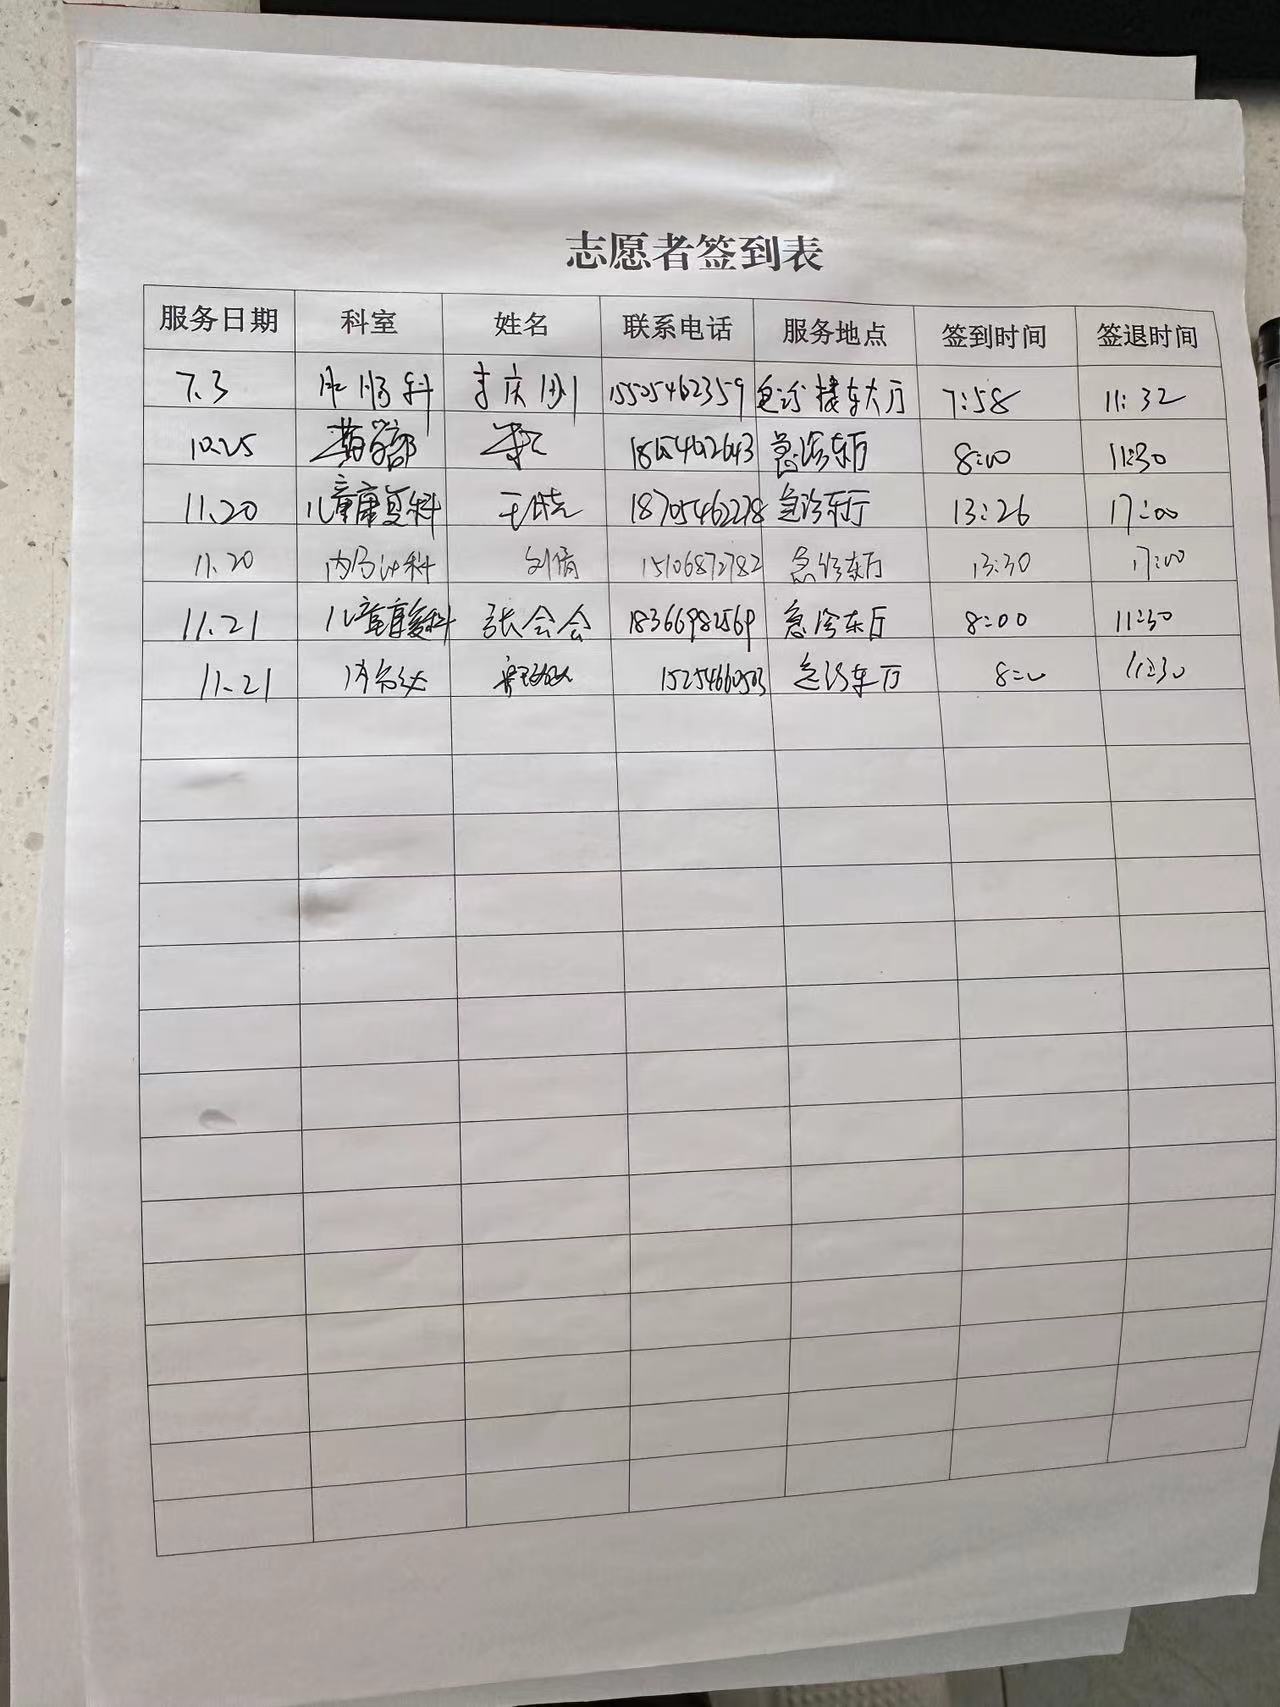 志愿者签到表
服务日期 科室 姓名 联系电话 服务地点 签到时间 签退时间
7.3 15505462359 急诊楼东大厅 7:58 11:32
10.25 药学部 急诊东厅 8:00 11:30
11.20 儿童康复科 18705462278 急诊东厅 13:26 17:00
11.20 内分泌科 刘倩 15106872782 急诊东厅 13:30 17:00
11.21 儿童康复科 张会会 18366982569 急诊东厅 8:00 11:30
11.21 15254660503 急诊东厅 8:00 11:30